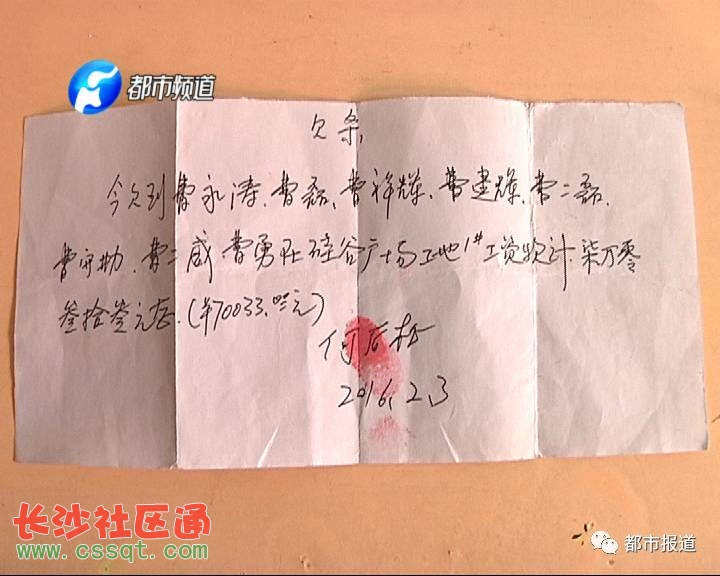 都市频道
欠条
今欠到曹永涛、曹磊、曹祥辉、曹建辉、曹二磊、
曹守勋、曹二威、曹勇在硅谷广场工地1#工资款计柒万零
叁拾叁元整.(¥70033.00元)
何
2016.2.3
长沙社区通
www.cssqt.com
都市报道